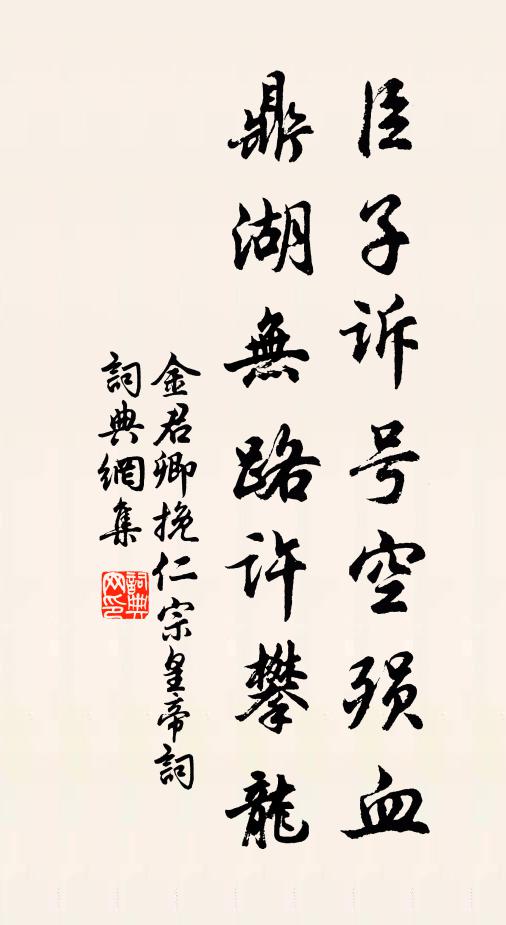 臣子诉号空殒血
鼎湖無路許攀龍
金君卿挽仁宗皇帝詞
詞典網集
詞典网印